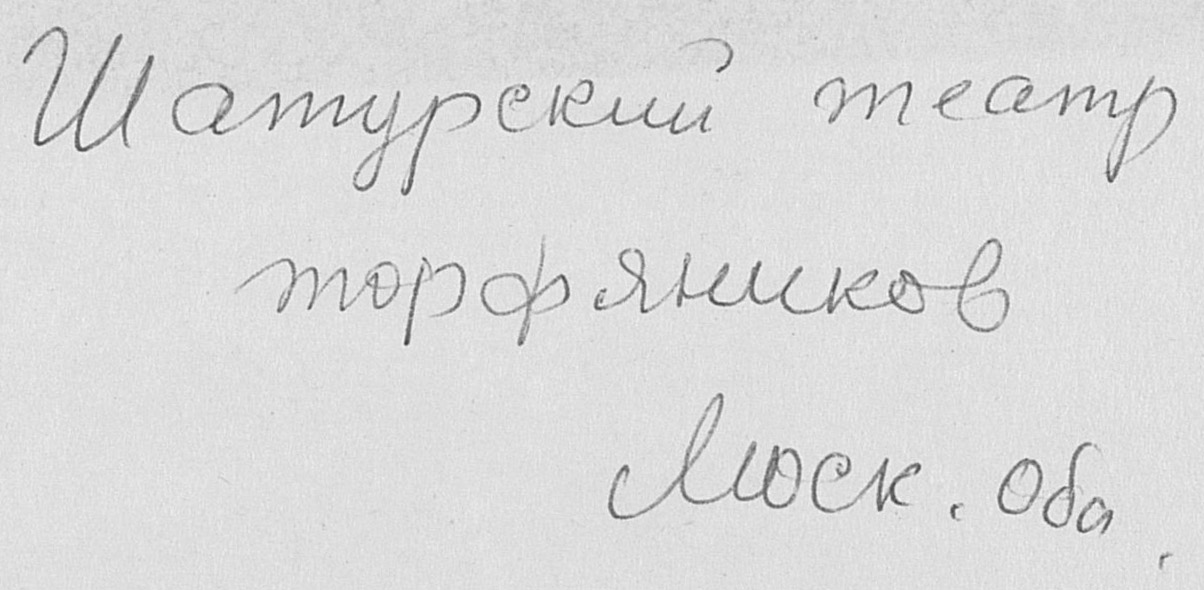 Шатурский театр
торфяников
Моск. обл.